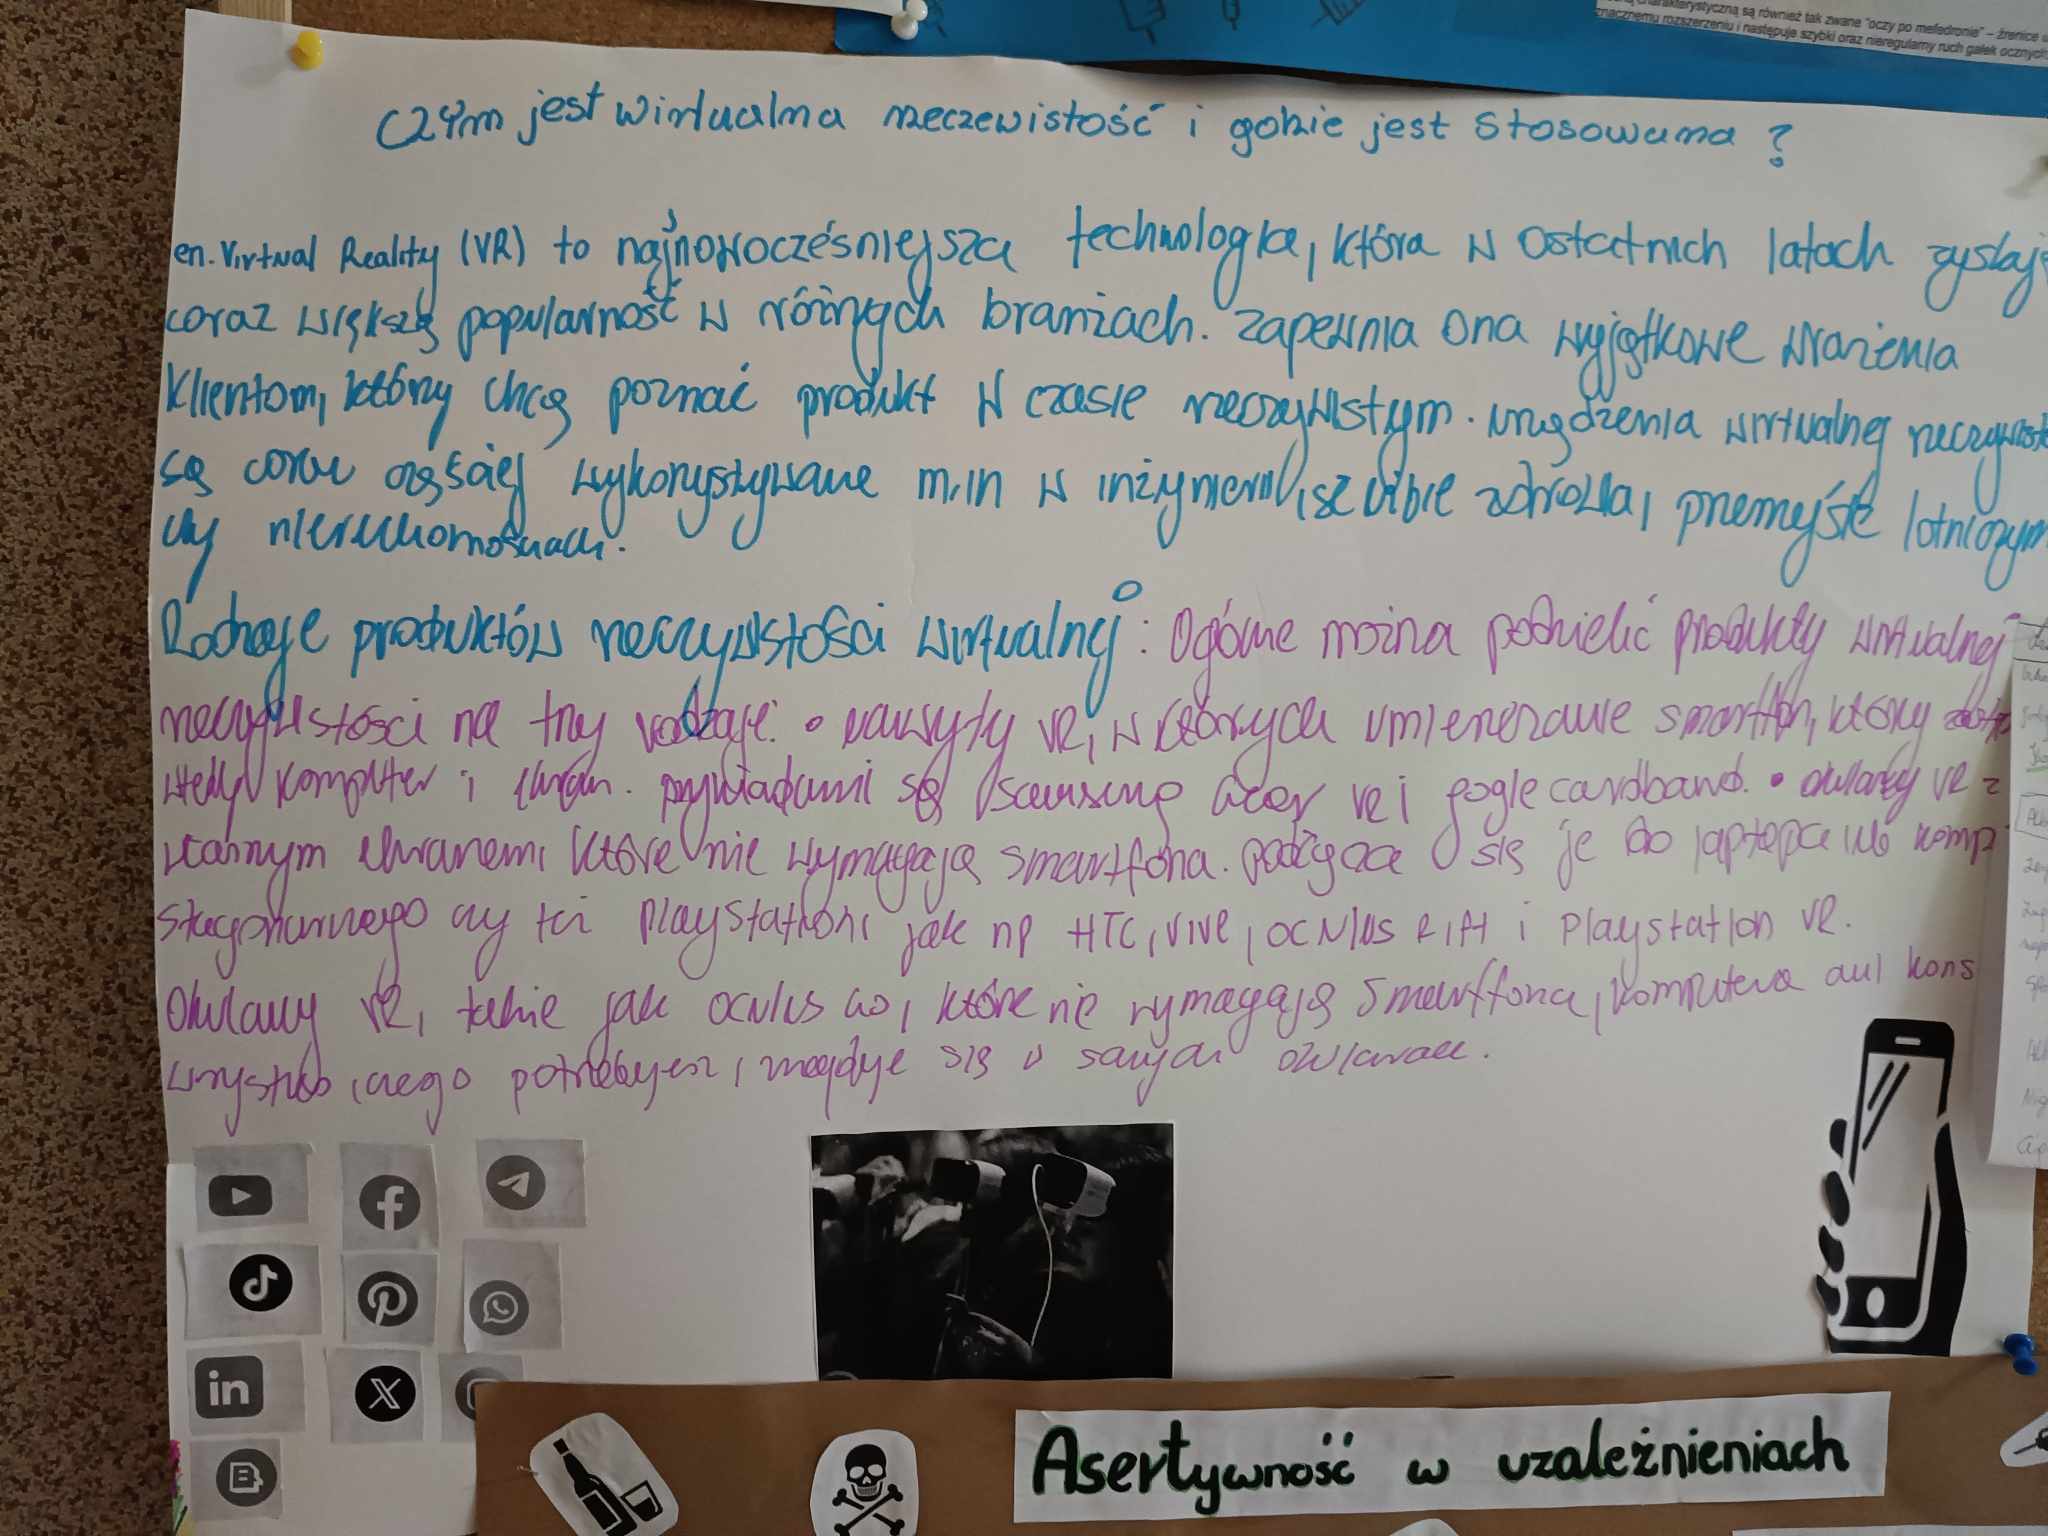 charakterystyczną są również tak zwane "oczy po mefedronie" – źrenice
znacznemu rozszerzeniu i następuje szybki oraz nieregularny ruch gałek ocznych
Czym jest wirtualna rzeczewistość i gdzie jest stosowana ?
en. Virtual Reality (VR) to najnowocześniejsza technologia, która w ostatnich latach zyskuje
coraz większą popularność w różnych branżach. Zapewnia ona wyjątkowe wrażenia
klientom, którzy chcą poznać produkt w czasie rzeczywistym. urządzenia wirtualnej
są coraz częściej wykorzystywane m.in w inżynierii, służbie zdrowia, przemyśle lotniczym
czy nieruchomościach.
Rodzaje produktów rzeczywistości wirtualnej : Ogólnie można podzielić produkty wirtualnej
rzeczywistości na trzy rodzaje: • zawszyty VR, w których umieszczane smartfon, który
wtedy komputer i ekran. przykładami są Samsung Gear VR i google cardboard. • okulary VR z
własnym ekranem, które nie wymagają smartfona. podłącza się je do laptopa lub komp
stacjonarnego czy też playstation, jak np HTC, VIVE, OCULUS Rift i Playstation VR.
Okulary VR, takie jak oculus Go, które nie wymagają smartfona, komputera ani kons
wszystko, czego potrzebujesz, znajduje się w samych okularach.
in
Asertywność w uzależnieniach